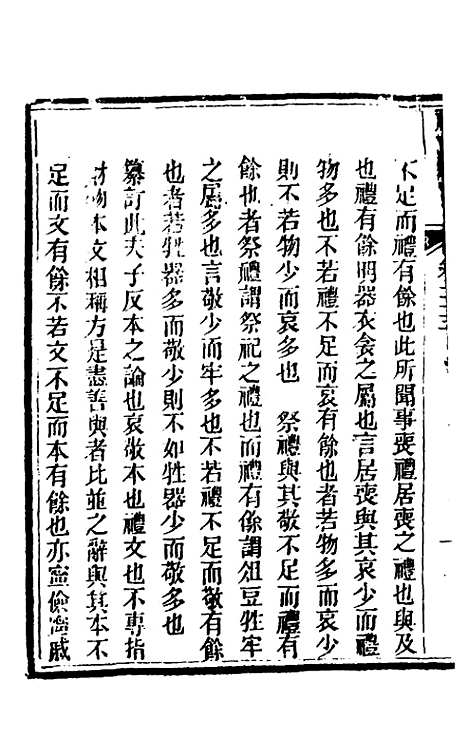 不足而禮有餘也此所聞事喪禮居喪之禮也與及
也禮有餘明器衣衾之屬也言居喪與其哀少而禮
物多也不若禮不足而哀有餘也者若物多而哀少
則不若物少而哀多也　祭禮與其敬不足而禮有
餘也者祭禮謂祭祀之禮也而禮有餘謂俎豆牲牢
之屬多也言敬少而牢多也不若禮不足而敬有餘
也者若牲器多而敬少則不如牲器少而敬多也
纂訂此夫子反本之論也哀敬本也禮文也不專指
財物本文相稱方是盡善與者比並之辭與其本不
足而文有餘不若文不足而本有餘也亦寧儉寧戚